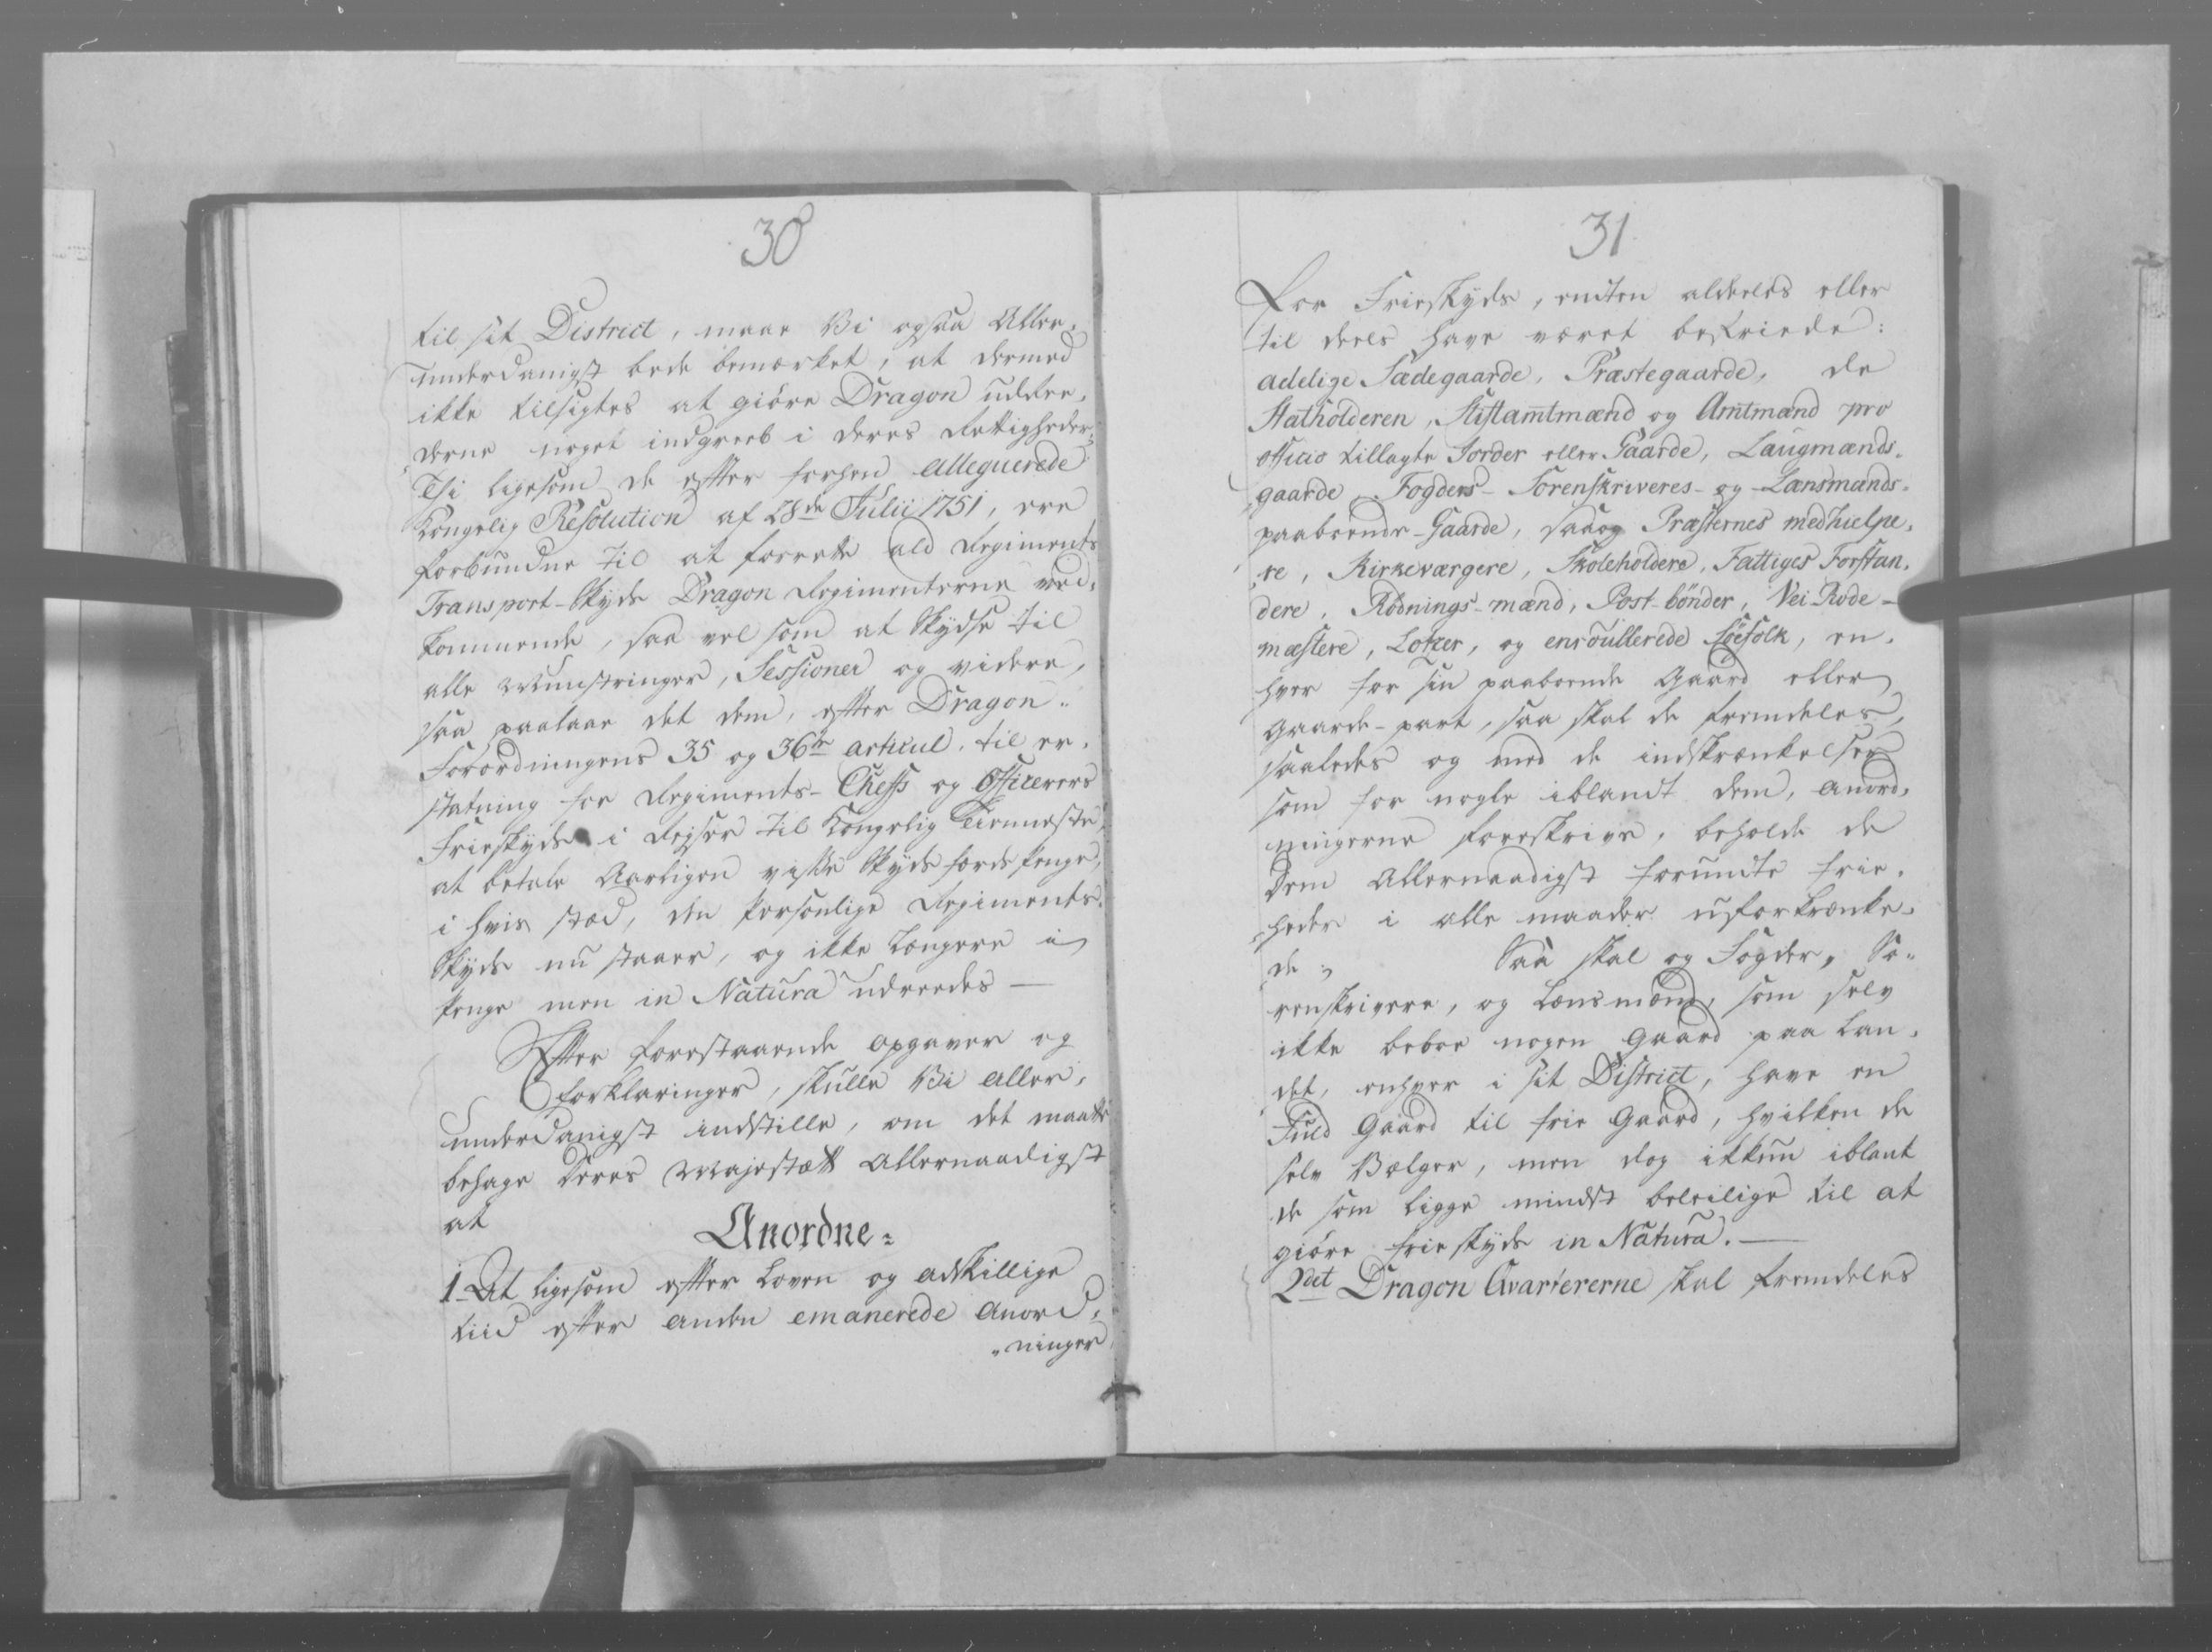 30
til sit District, maae Vi ogsaa Aller,
underdanigst bede bemærket, at dermed
ikke tilsigtes at giöre Dragon udree,
derne noget indgreeb i deres Rettigheder,
Thi ligesom de efter forhen alleguerede
Kongelig Resolution af 28de Julii 1751, ere
forbundne til at forrette ald Regiments
Transport-Skyds Dragon Regimenterne ved,
kommende, saa vel som at Skydse til
alle Mynstringer, Sessioner og videre,
saa paalaae det dem, efter Dragon„
Forordningens 35 og 36te articul, til er,
statning for Regiments-Cheffs og Officerers
Frieskyds i Reiser til Kongelig Tienneste,
at betale Aarligen visse Skydsfærds Penge,
i hvis stæd, den Personlige Regiments-
Skyds nu staaer, og ikke længere i
Penge men in Natura udreedes —
Efter forestaaende opgaver og
forklaringer, skulle Vi aller,
underdanigst indstille, om det maatte
behage Deres Majestætt allernaadigst
at
Anordne=
1 At ligesom efter Loven og adskillige
tiid efter anden emanerede Anord,
„ninger
31
For Frieskyds, endten aldeeles eller
til deels have været befriede:
adelige Sædegaarde, Præstegaarde, de
Statholderen, Stiftamtmænd og Amtmænd pro
officio tillagte Jorder eller Gaarde, Laugmænds„
gaarde, Fogders- Sorenskriveres- og Lænsmænds-
paaboende-Gaarde, saaog Præsternes medhielpe,
re, Kirkeværgere, Skoleholdere, Fattiges Forstan,
dere, Rodnings-mænd, Post-bönder, Vei-Rode-
mæstere, Lotzer, og enroullerede Söefolk, en,
hver for sin paaboende Gaard eller
Gaarde-part, saa skal de fremdeles,
saaledes og med de indskrænkelser
som for nogle iblandt dem, anord,
ningerne foreskrive, beholde de
dem Allernaadigst forundte frie,
heder i alle maader uforkrænke,
de; Saa skal og Fogder, So„
renskrivere, og Lænsmænd, som selv
ikke beboe nogen Gaard paa Lan,
det, enhver i sit District, have en
Fuld Gaard til frie Gaard, hvilken de
selv Vælger, men dog ikkun iblant
de som ligge mindst beleilige til at
giöre frieskyds in Natura. —
2det Dragon Qvartererne skal fremdeles